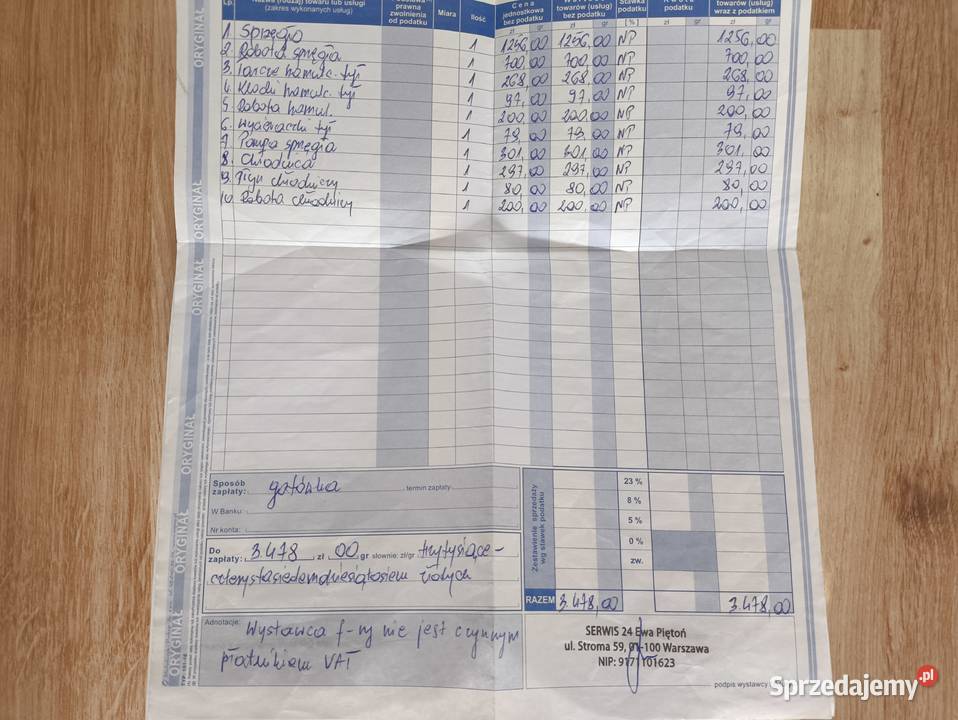 Lp. Nazwa (rodzaj) towaru lub usługi (zakres wykonanych usług) prawna zwolnienia od podatku Miara Ilość Cena jednostkowa bez podatku towarów (usług) bez podatku Stawka podatku [%] Kwota podatku towarów (usług) wraz z podatkiem
zł gr zł gr zł gr zł gr
1. Sprzęgło 1 1256,00 1256,00 NP 1256,00
2. Robota sprzęgła 1 700,00 700,00 NP 700,00
3. Tarcze hamulc. tył 1 268,00 268,00 NP 268,00
4. Klocki hamulc. tył 1 97,00 97,00 NP 97,00
5. Robota hamul. 1 200,00 200,00 NP 200,00
6. Wycieraczki tył 1 79,00 79,00 NP 79,00
7. Pompa sprzęgła 1 301,00 301,00 NP 301,00
8. Chłodnica 1 297,00 297,00 NP 297,00
9. Płyn chłodniczy 1 80,00 80,00 NP 80,00
10. Robota chłodnicy 1 200,00 200,00 NP 200,00
ORYGINAŁ
ORYGINAŁ
ORYGINAŁ
ORYGINAŁ
ORYGINAŁ
ORYGINAŁ
Sposób zapłaty: gotówka termin zapłaty
W Banku:
Nr konta:
Do zapłaty: 3.478 zł 00 gr słownie: zł/gr trzytysiące-
czterystasiedemdziesiątosiem złotych
Zestawienie sprzedaży wg stawek podatku
23 %
8 %
5 %
0 %
zw.
RAZEM 3.478,00 3.478,00
Adnotacje: Wystawca f-ry nie jest czynnym
płatnikiem VAT
SERWIS 24 Ewa Piętoń
ul. Stroma 59, 01-100 Warszawa
NIP: 9171101623
podpis wystawcy
Sprzedajemy.pl